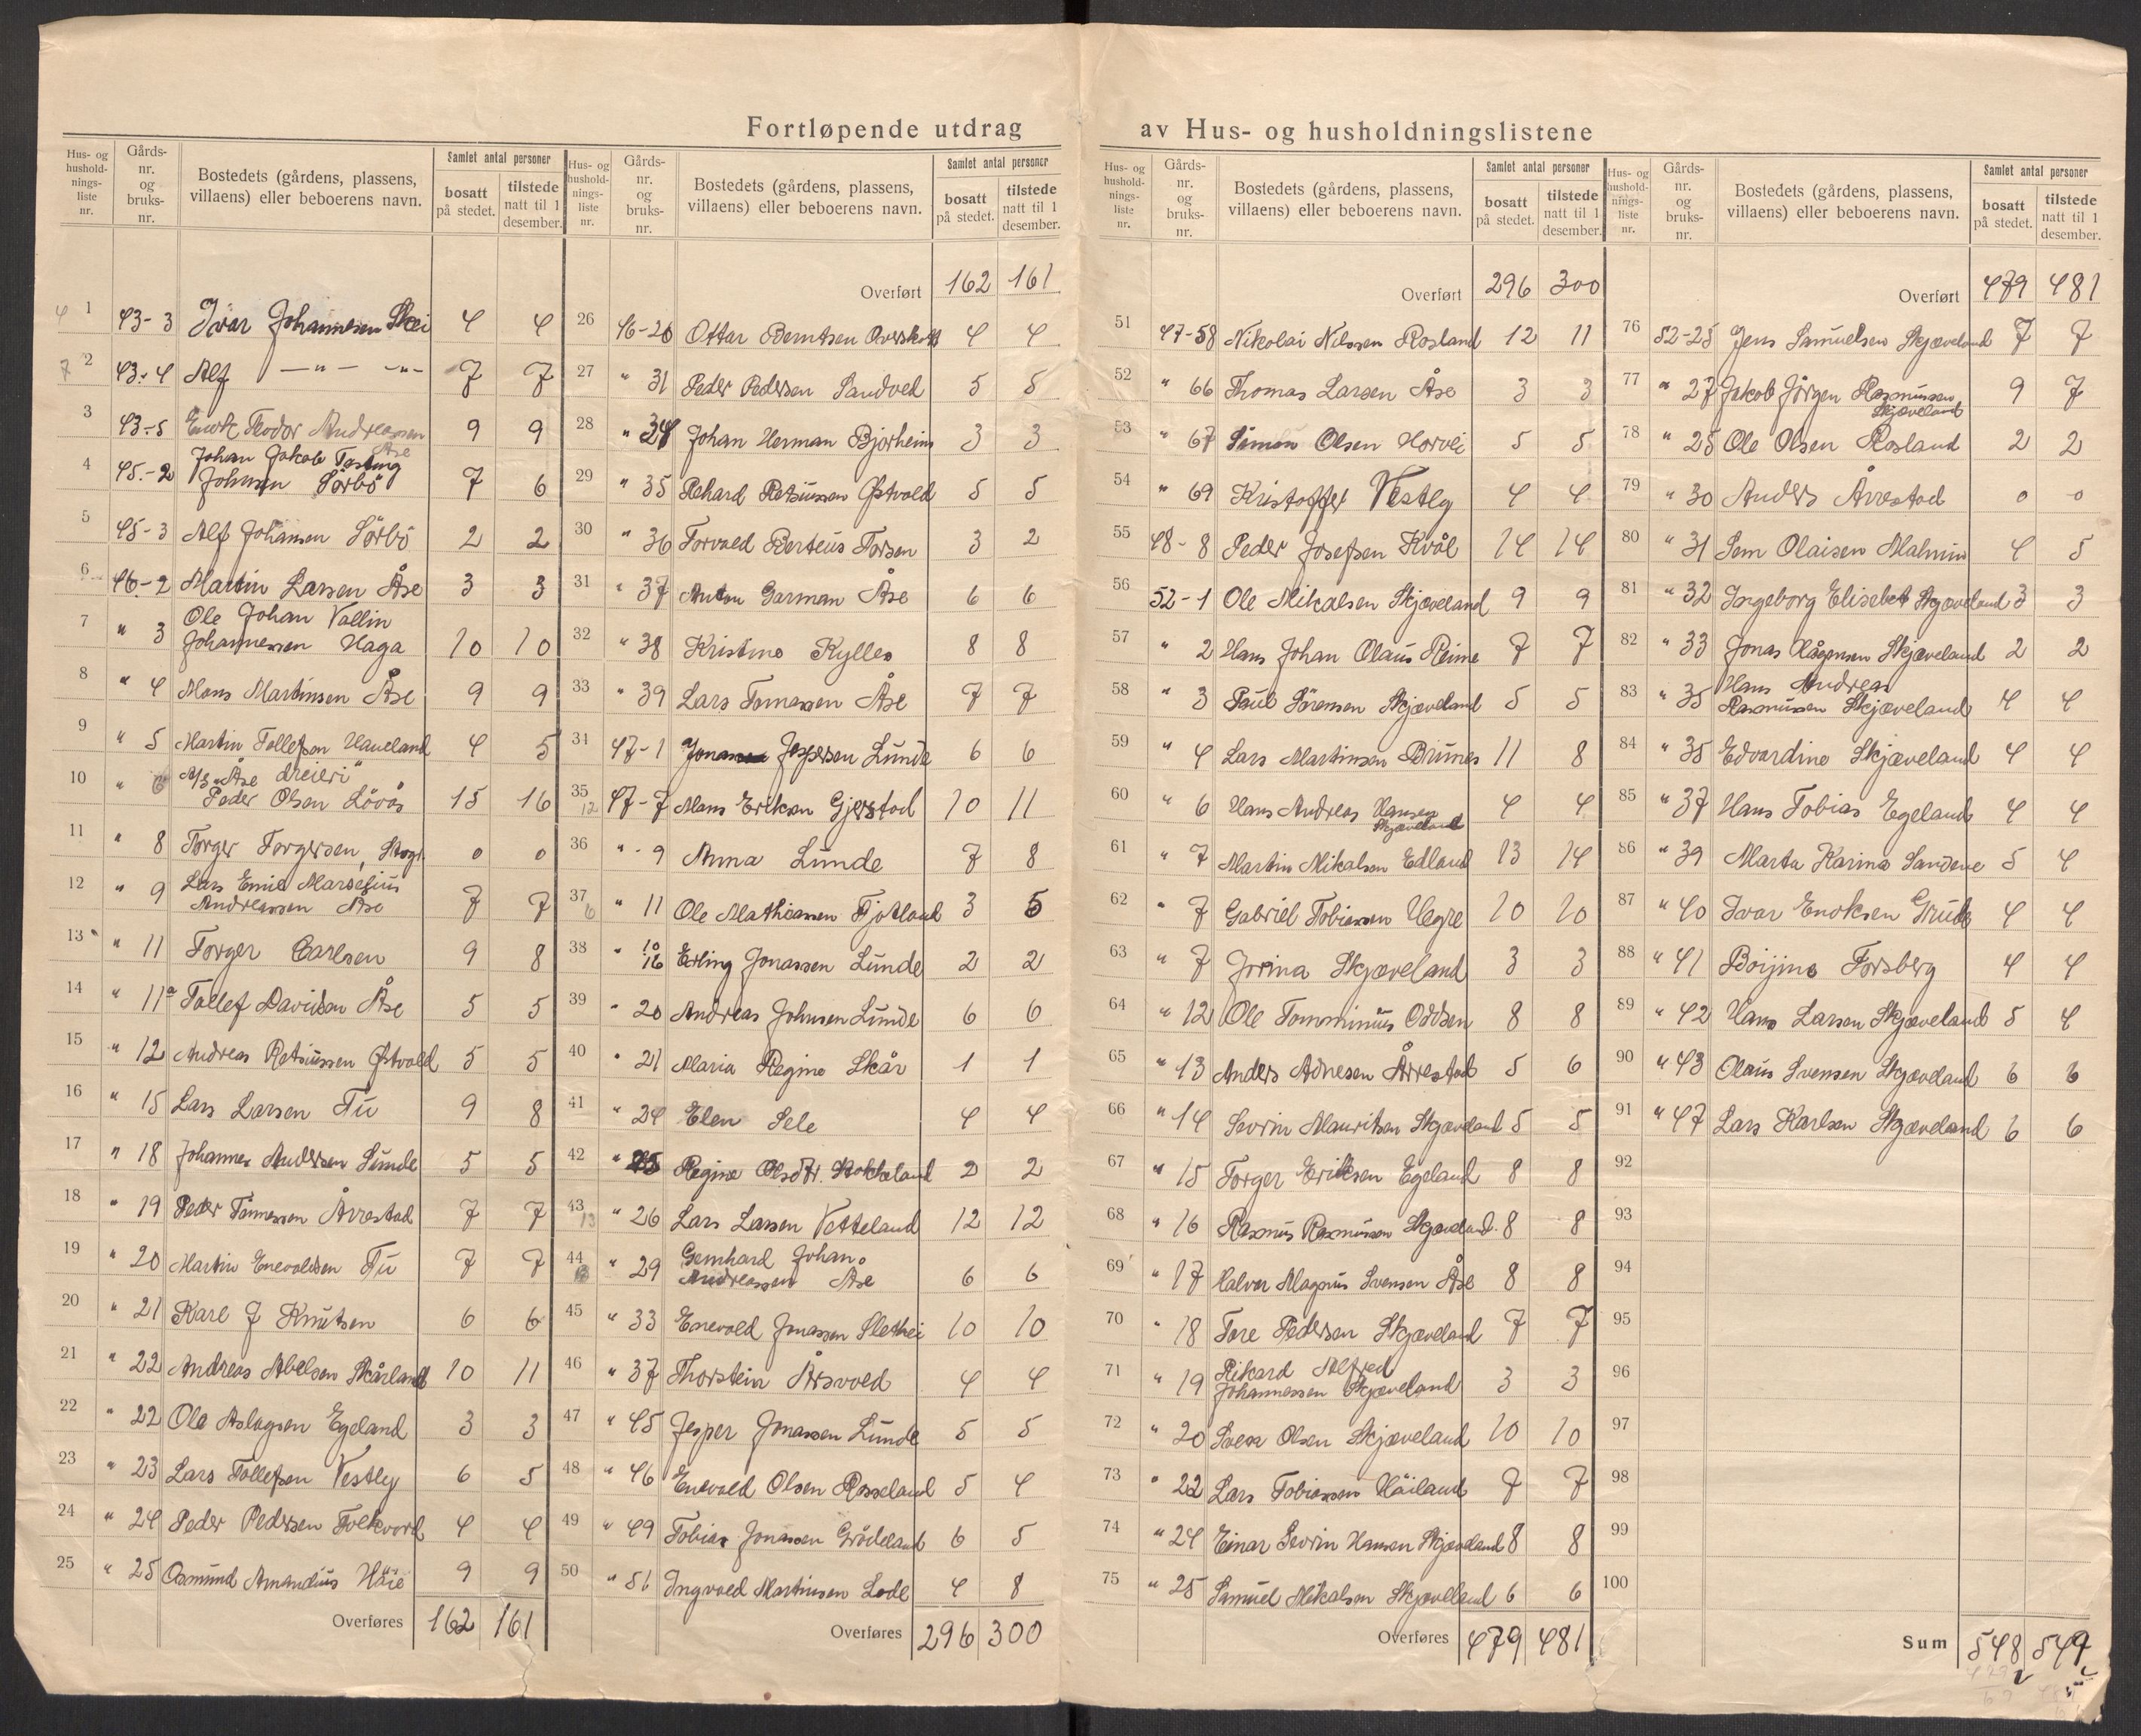 Fortløpende utdrag av Hus- og husholdningslistene
Hus- og husholdnings-liste nr. Gårds-nr. og bruks-nr. Bostedets (gårdens, plassens, villaens) eller beboerens navn. Samlet antal personer bosatt på stedet. tilstede natt til 1 desember.
1 43-3 Ivar Johannesen Skei 4 4
2 43-4 Alf —"— —"— 7 7
3 43-5 Enok Teodor Andreassen Åse 9 9
4 45-2 Johan Jakob Tasting Johnsen Sörbö 7 6
5 45-3 Alf Johansen Sörbö 2 2
6 46-2 Martin Larsen Åse 3 3
7 " 3 Ole Johan Vallin Johannessen Haga 10 10
8 " 4 Mons Martinsen Åse 9 9
9 " 5 Martin Tollefsen Haveland 4 5
10 " 6 A/S "Åse dreieri" Peder Olsen Lövås 15 16
11 " 8 Torger Torgersen, Skogs 0 0
12 " 9 Lars Emil Marselius Andreassen Åse 7 7
13 " 11 Torger Carlsen 9 8
14 " 11a Tollef Davidsen Åse 5 5
15 " 12 Andreas Retsiussen Østvold 5 5
16 " 15 Lars Larsen Tu 9 8
17 " 18 Johannes Andersen Lunde 5 5
18 " 19 Peder Tönnessen Årrestad 7 7
19 " 20 Martin Enevoldsen Tu 7 7
20 " 21 Karl J Knutsen 6 6
21 " 22 Andreas Abelsen Skårland 10 11
22 " 22 Ole Aslagsen Egeland 3 3
23 " 23 Lars Tollefsen Vestly 6 5
24 " 24 Peder Pedersen Folkvord 4 4
25 " 25 Osmund Amandius Håie 9 9
Overføres 162 161
Hus- og husholdnings-liste nr. Gårds-nr. og bruks-nr. Bostedets (gårdens, plassens, villaens) eller beboerens navn. Samlet antal personer bosatt på stedet. tilstede natt til 1 desember.
Overført 162 161
26 46-26 Ottar Berntsen 4 4
27 " 31 Peder Pedersen Sandved 5 5
28 " 34 Johan Herman Bjorheim 3 3
29 " 35 Rehard Retsiussen Østvold 5 5
30 " 36 Torvald Berteus Torsen 3 2
31 " 37 Anton Garman Åse 6 6
32 " 38 Kristine Kylles 8 8
33 " 39 Lars Tomassen Åse 7 7
34 47-1 Jonas Jespersen Lunde 6 6
35 12 47-7 Mons Eriksen Gjerstad 10 11
36 " - 9 Anna Lunde 7 8
37 6 " 11 Ole Mathiassen Fjotland 3 5
38 " 10 16 Erling Jonassen Lunde 2 2
39 " 20 Andreas Johnsen Lunde 6 6
40 " 21 Maria Regine Skår 1 1
41 " 24 Elen Sele 4 4
42 " 25 Regine Olsdtr. Stokkeland 2 2
43 13 " 26 Lars Larsen Vetteland 12 12
44 " 29 Gernhard Johan Andreassen Åse 6 6
45 " 33 Enevold Jonassen Slethei 10 10
46 " 37 Thorstein Årsvold 4 4
47 " 45 Jesper Jonassen Lunde 5 5
48 " 46 Enevold Olsen Rosseland 5 4
49 " 49 Tobias Jonassen Grödeland 6 5
50 " 51 Ingvald Martinsen Lode 4 8
Overføres 296 300
Hus- og husholdnings-liste nr. Gårds-nr. og bruks-nr. Bostedets (gårdens, plassens, villaens) eller beboerens navn. Samlet antal personer bosatt på stedet. tilstede natt til 1 desember.
Overført 296 300
51 47-58 Nikolai Nilssen Rosland 12 11
52 " 66 Thomas Larsen Åse 3 3
53 " 67 Simon Olsen Horvei 5 5
54 " 69 Kristoffer Vestly 4 4
55 48-8 Peder Josefsen Kvål 14 14
56 52-1 Ole Mikalsen Skjæveland 9 9
57 " 2 Hans Johan Olaus Reime 7 7
58 " 3 Paul Sörensen Skjæveland 5 5
59 " 4 Lars Martinsen Brunes 11 8
60 " 6 Hans Andreas Hansen Skjæveland 4 4
61 " 7 Martin Mikalsen Edland 13 14
62 " 7 Gabriel Tobiassen Hegre 10 10
63 " 7 Jorina Skjæveland 3 3
64 " 12 Ole Tomminius Oddsen 8 8
65 " 13 Anders Adnesen Årrestad 5 6
66 " 14 Sevrin Mauritsen Skjæveland 5 5
67 " 15 Torger Eriksen Egeland 8 8
68 " 16 Rasmus Rasmussen Skjæveland 8 8
69 " 17 Halvor Magnus Svensen Åse 8 8
70 " 18 Tore Pedersen Skjæveland 7 7
71 " 19 Rikard Alfred Johannessen Skjæveland 3 3
72 " 20 Svein Olsen Skjæveland 10 10
73 " 22 Lars Tobiassen Håiland 7 7
74 " 24 Einar Sevrin Hansen Skjæveland 8 8
75 " 25 Samuel Mikalsen Skjæveland 6 6
Overføres 479 481
Hus- og husholdnings-liste nr. Gårds-nr. og bruks-nr. Bostedets (gårdens, plassens, villaens) eller beboerens navn. Samlet antal personer bosatt på stedet. tilstede natt til 1 desember.
Overført 479 481
76 52-25 Jens Samuelsen Skjæveland 7 7
77 " 27 Jakob Jörgen Rasmussen Skjæveland 9 7
78 " 25 Ole Olsen Rosland 2 2
79 " 30 Anders Årrestad 0 0
80 " 31 Sem Olaisen Malmin 4 5
81 " 32 Ingeborg Elisabet Skjæveland 3 3
82 " 33 Jonas Hågensen Skjæveland 2 2
83 " 35 Hans Andreas Rasmussen Skjæveland 4 4
84 " 35 Edvardine Skjæveland 4 4
85 " 37 Hans Tobias Egeland 4 4
86 " 39 Marta Karina Sandene 5 4
87 " 40 Ivar Enoksen Grude 4 4
88 " 41 Borjine Forsberg 4 4
89 " 42 Hans Larsen Skjæveland 5 4
90 " 43 Olaus Svensen Skjæveland 6 6
91 " 47 Lars Karlsen Skjæveland 6 6
92
93
94
95
96
97
98
99
100
Sum 548 549